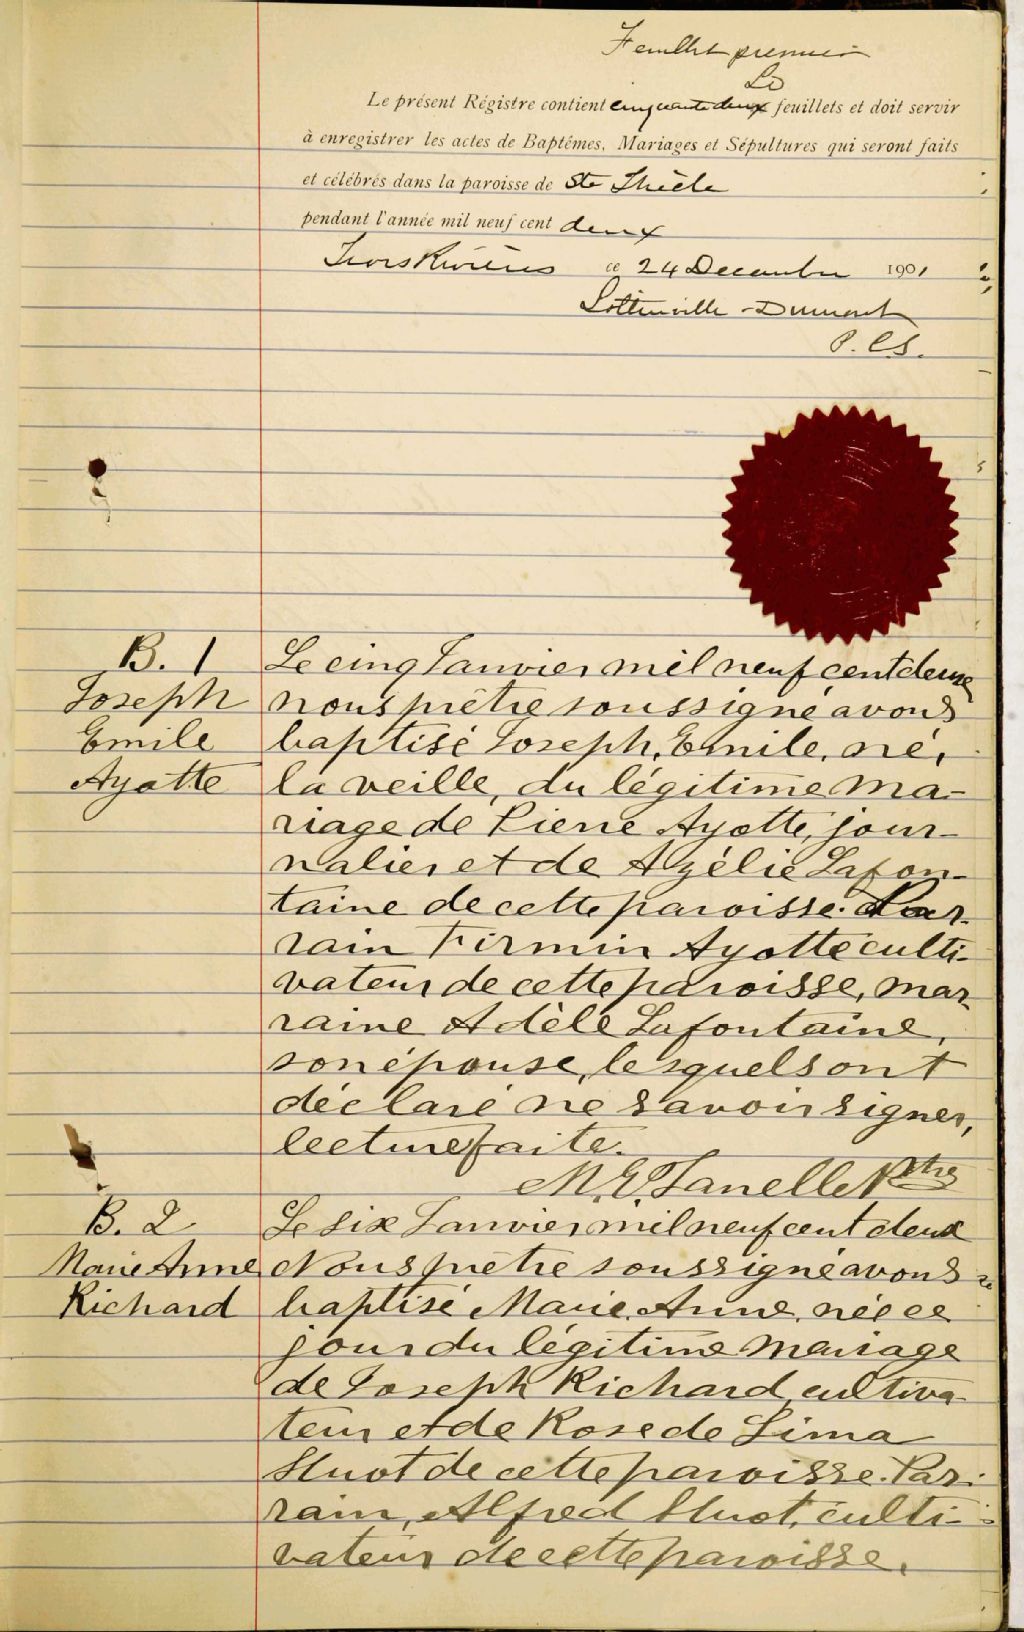 Feuillet premier
Le présent Régistre contient cinquante deux feuillets et doit servir
à enregistrer les actes de Baptêmes, Mariages et Sépultures qui seront faits
et célébrés dans la paroisse de Ste Thècle
pendant l'année mil neuf cent deux
Trois Rivières ce 24 Decembre 1901
Lottinville - Dumont
P. C. S.
B. 1
Joseph
Emile
Ayotte
Le cinq Janvier mil neuf cent deux
nous prêtre soussigné avons
baptisé Joseph, Emile, né,
la veille, du légitime ma-
riage de Pierre Ayotte, jour-
nalier et de Azélie Lafon-
taine de cette paroisse. Par-
rain Firmin Ayotte culti-
vateur de cette paroisse, mar-
raine Adèle Lafontaine,
son épouse, lesquels ont
déclaré ne savoir signer,
lecture faite.
M. E. Janelle Ptre
B. 2
Marie Anne
Richard
Le six Janvier mil neuf cent deux
Nous prêtre soussigné avons
baptisé Marie, Anne, née ce
jour du légitime mariage
de Joseph Richard, cultiva-
teur et de Rose de Lima
Huot de cette paroisse. Par-
rain, Alfred Huot, culti-
vateur de cette paroisse,